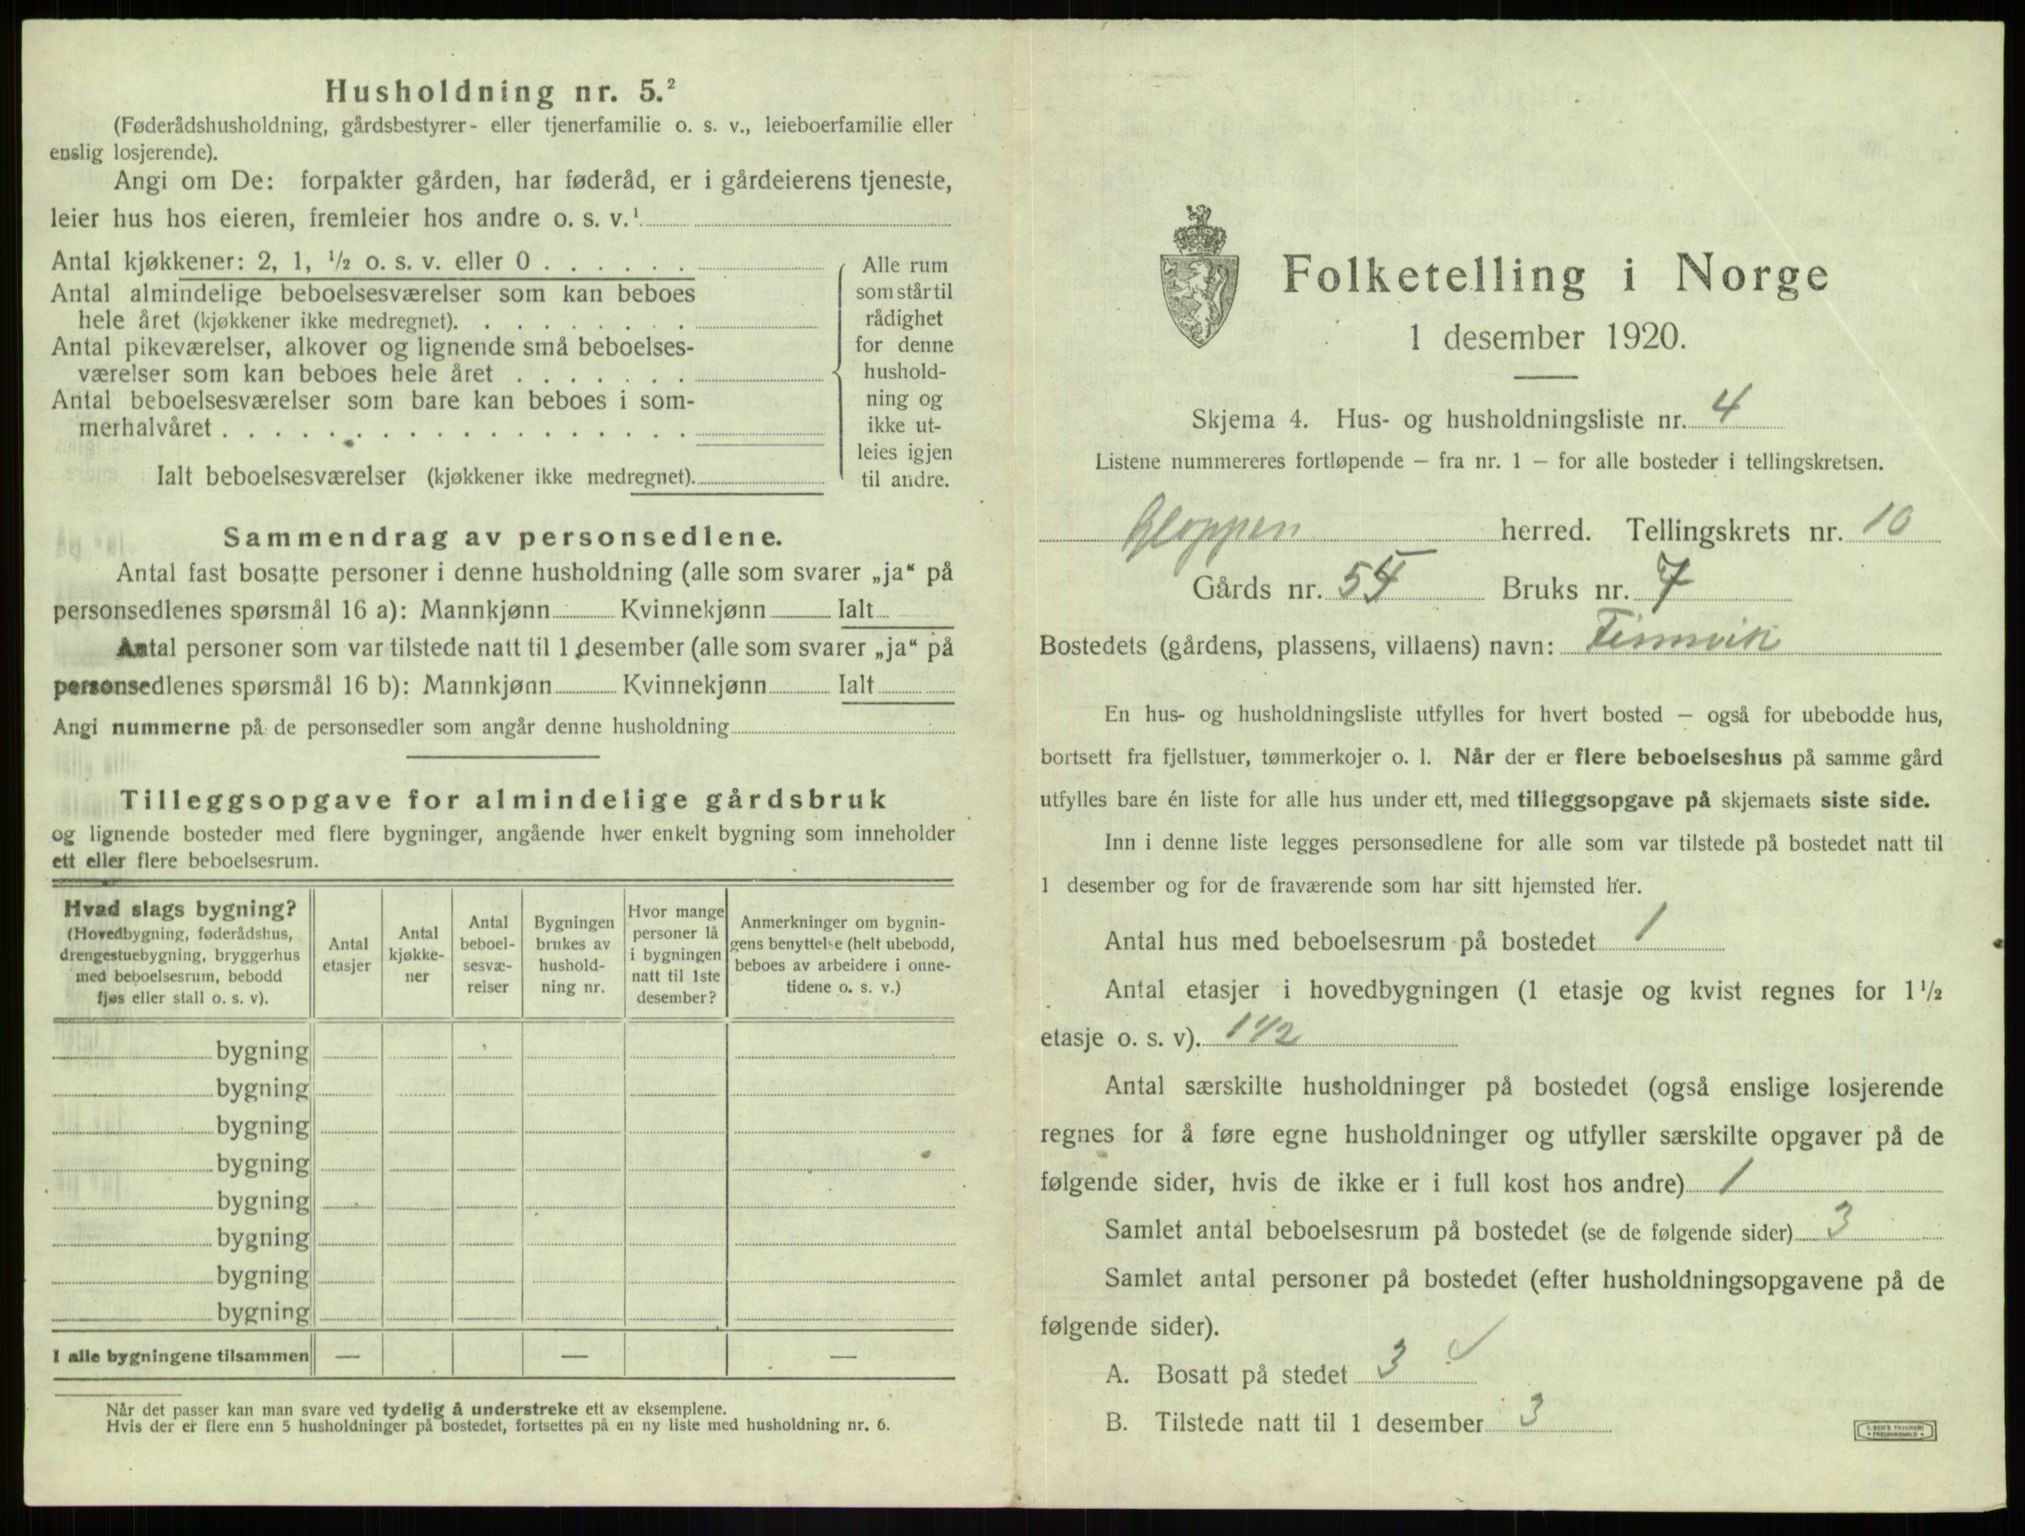 Husholdning nr. 5.²
(Føderådshusholdning, gårdsbestyrer- eller tjenerfamilie o. s. v., leieboerfamilie eller
enslig losjerende).
Angi om De: forpakter gården, har føderåd, er i gårdeierens tjeneste,
leier hus hos eieren, fremleier hos andre o. s. v.¹
Antal kjøkkener: 2, 1, ½ o. s. v. eller 0
Antal almindelige beboelsesværelser som kan beboes
hele året (kjøkkener ikke medregnet).
Antal pikeværelser, alkover og lignende små beboelses-
værelser som kan beboes hele året
Antal beboelsesværelser som bare kan beboes i som-
merhalvåret
Ialt beboelsesværelser (kjøkkener ikke medregnet).
Alle rum
som står til
rådighet
for denne
hushold-
ning og
ikke ut-
leies igjen
til andre.
Sammendrag av personsedlene.
Antal fast bosatte personer i denne husholdning (alle som svarer „ja“ på
personsedlenes spørsmål 16 a): Mannkjønn Kvinnekjønn Ialt
Antal personer som var tilstede natt til 1 desember (alle som svarer „ja“ på
personsedlenes spørsmål 16 b): Mannkjønn Kvinnekjønn Ialt
Angi nummerne på de personsedler som angår denne husholdning
Tilleggsopgave for almindelige gårdsbruk
og lignende bosteder med flere bygninger, angående hver enkelt bygning som inneholder
ett eller flere beboelsesrum.
Hvad slags bygning?
(Hovedbygning, føderådshus,
drengestuebygning, bryggerhus
med beboelsesrum, bebodd
fjøs eller stall o. s. v).
Antal
etasjer
Antal
kjøkke-
ner
Antal
beboel-
sesvæ-
relser
Bygningen
brukes av
hushold-
ning nr.
Hvor mange
personer lå
i bygningen
natt til 1ste
desember?
Anmerkninger om bygnin-
gens benyttelse (helt ubebodd,
beboes av arbeidere i onne-
tidene o. s. v.)
bygning
bygning
bygning
bygning
bygning
bygning
bygning
bygning
I alle bygningene tilsammen — — —
Når det passer kan man svare ved tydelig å understreke ett av eksemplene.
Hvis der er flere enn 5 husholdninger på bostedet, fortsettes på en ny liste med husholdning nr. 6.
Folketelling i Norge
1 desember 1920.
Skjema 4. Hus- og husholdningsliste nr. 4
Listene nummereres fortløpende – fra nr. 1 – for alle bosteder i tellingskretsen.
Gloppen herred. Tellingskrets nr. 10
Gårds nr. 54 Bruks nr. 7
Bostedets (gårdens, plassens, villaens) navn: Finnvik
En hus- og husholdningsliste utfylles for hvert bosted – også for ubebodde hus,
bortsett fra fjellstuer, tømmerkojer o. l. Når der er flere beboelseshus på samme gård
utfylles bare én liste for alle hus under ett, med tilleggsopgave på skjemaets siste side.
Inn i denne liste legges personsedlene for alle som var tilstede på bostedet natt til
1 desember og for de fraværende som har sitt hjemsted her.
Antal hus med beboelsesrum på bostedet 1
Antal etasjer i hovedbygningen (1 etasje og kvist regnes for 1½
etasje o. s. v). 1 1/2
Antal særskilte husholdninger på bostedet (også enslige losjerende
regnes for å føre egne husholdninger og utfyller særskilte opgaver på de
følgende sider, hvis de ikke er i full kost hos andre) 1
Samlet antal beboelsesrum på bostedet (se de følgende sider) 3
Samlet antal personer på bostedet (efter husholdningsopgavene på de
følgende sider).
A. Bosatt på stedet 3
B. Tilstede natt til 1 desember 3